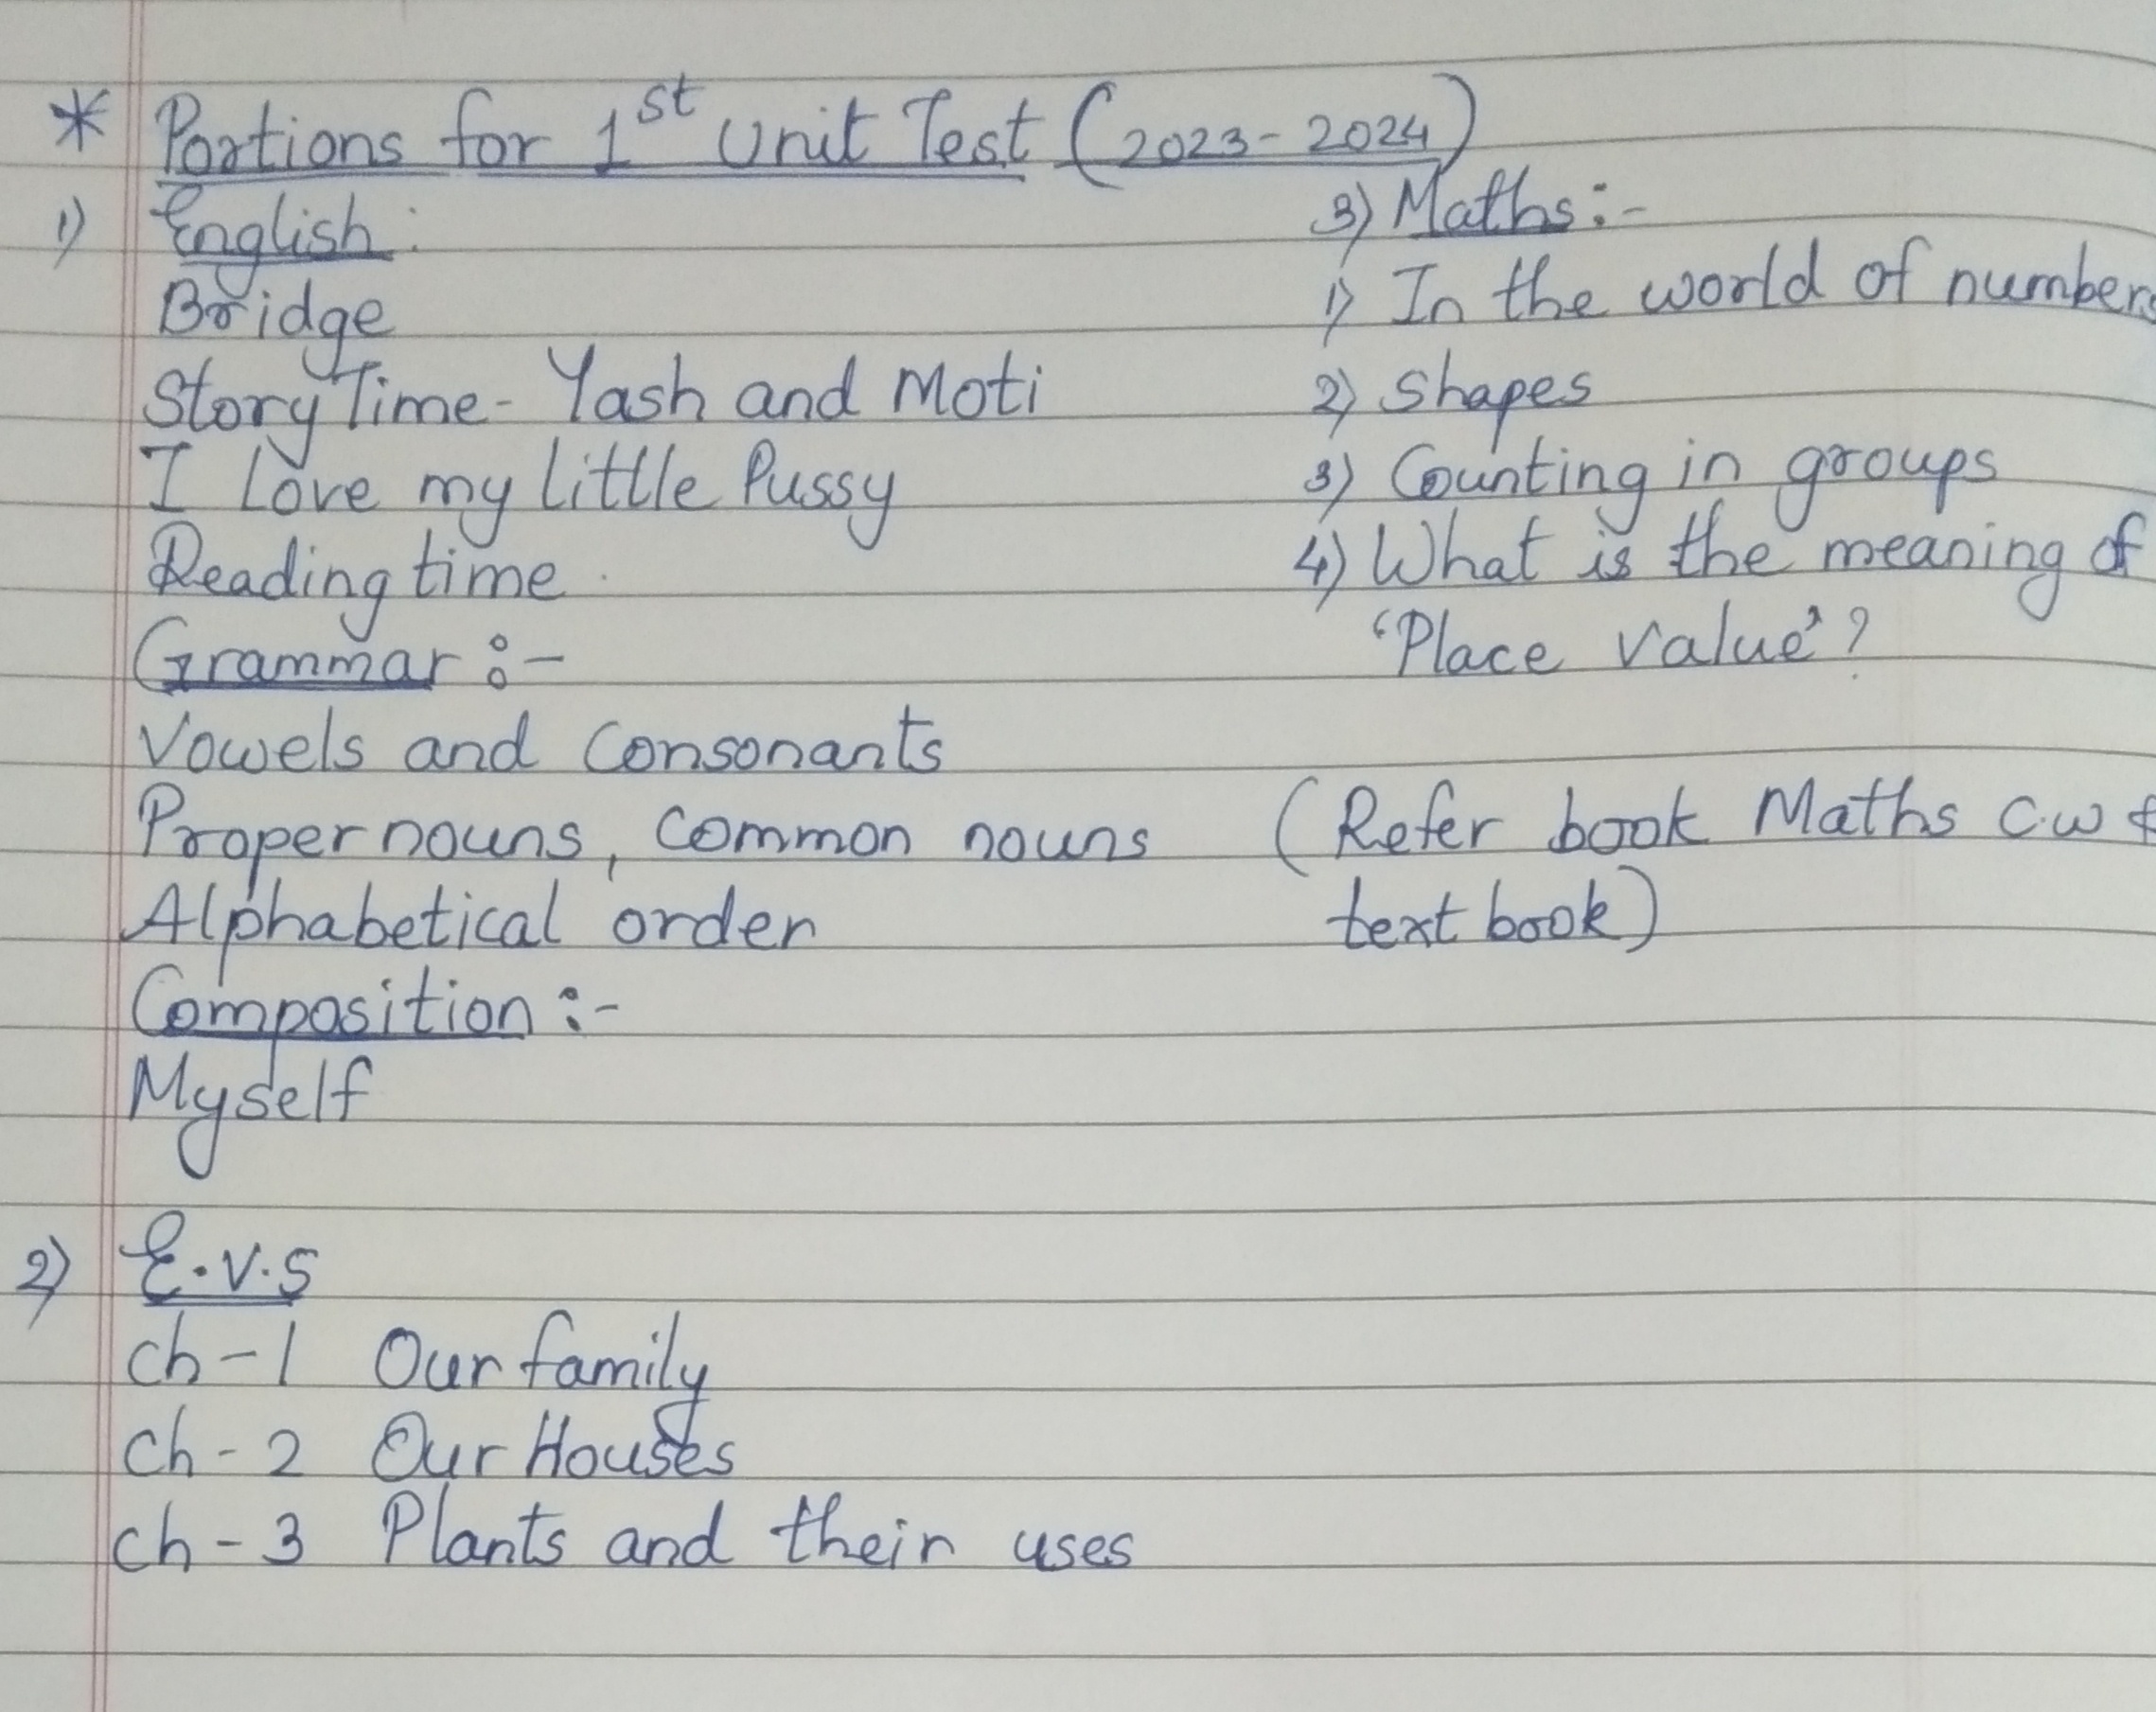 * Portions for 1st Unit Test (2023-2024)
1) English:
Bridge
Story Time - Yash and Moti
I Love my little Pussy
Reading time
Grammar :-
Vowels and Consonants
Proper nouns, Common nouns
Alphabetical order
Composition :-
Myself
2) E.V.S
Ch-1 Our family
Ch-2 Our Houses
Ch-3 Plants and their uses
3) Maths:-
1) In the world of numbers
2) Shapes
3) Counting in groups
4) What is the meaning of
'Place Value'?
(Refer book Maths C.W &
text book)